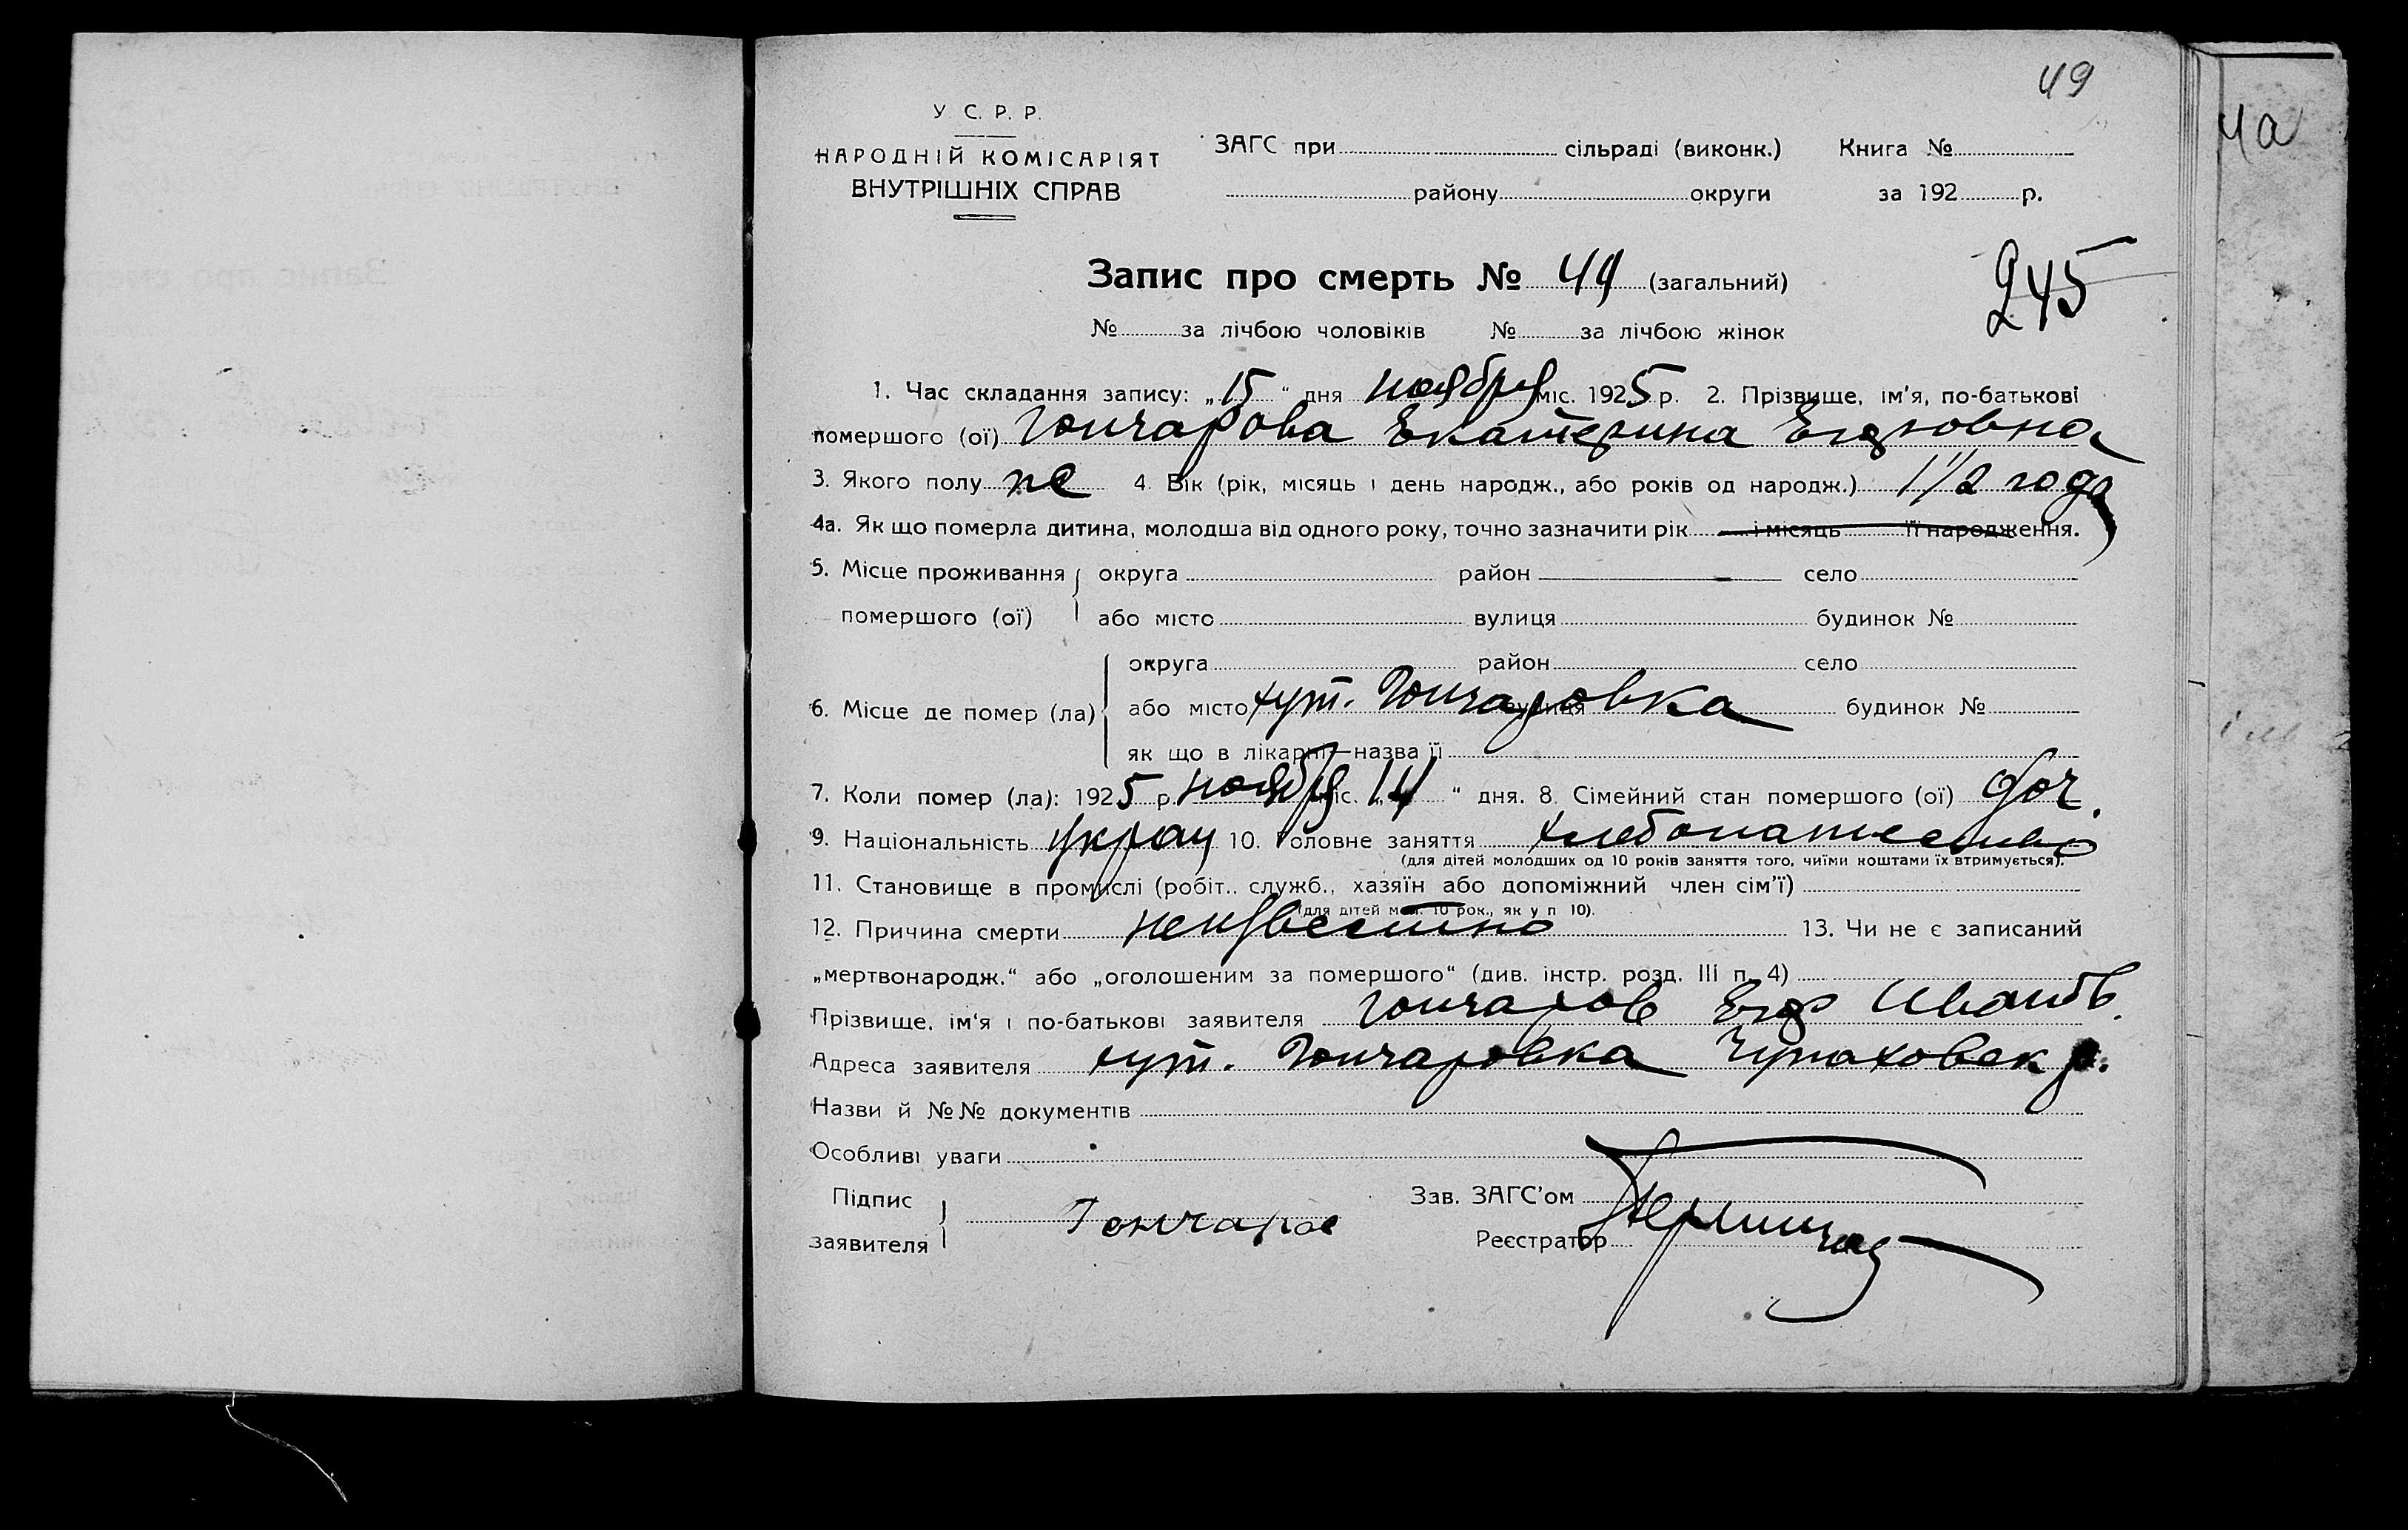 49
4а
У. С. Р. Р.
НАРОДНІЙ КОМІСАРІЯТ
ВНУТРІШНІХ СПРАВ
ЗАГС при сільраді (виконк.) Книга №
району округи за 192 р.
Запис про смерть № 49 (загальний)
245
№ за лічбою чоловіків № за лічбою жінок
1. Час складання запису: „15“ дня ноября міс. 1925 р. 2. Прізвище, ім'я, по-батькові
помершого (ої) Гончарова Екатерина Егоровна
3. Якого полу же 4. Вік (рік, місяць і день народж., або років од народж.) 1 1/2 года
4а. Як що померла дитина, молодша від одного року, точно зазначити рік і місяць її народження.
5. Місце проживання округа район село
помершого (ої) або місто вулиця будинок №
округа район село
6. Місце де помер (ла) або місто хут. Гончаровка вулиця будинок №
як що в лікарні—назва її
7. Коли помер (ла): 1925 р. ноября міс. „14“ дня. 8. Сімейний стан помершого (ої) доч.
9. Національність украин 10. Головне заняття хлебопашество
(для дітей молодших од 10 років заняття того, чиїми коштами їх втримується).
11. Становище в промислі (робіт., служб., хазяїн або допоміжний член сім'ї)
(для дітей мол. 10 рок., як у п 10).
12. Причина смерти неизвестно 13. Чи не є записаний
„мертвонародж.“ або „оголошеним за помершого“ (див. інстр. розд. III п. 4)
Прізвище, ім'я і по-батькові заявителя Гончаров Егор Иванов.
Адреса заявителя хут. Гончаровка Чупаховск р.
Назви й №№ документів
Особливі уваги
Підпис Зав. ЗАГС'ом
заявителя Гончаров Реєстратор